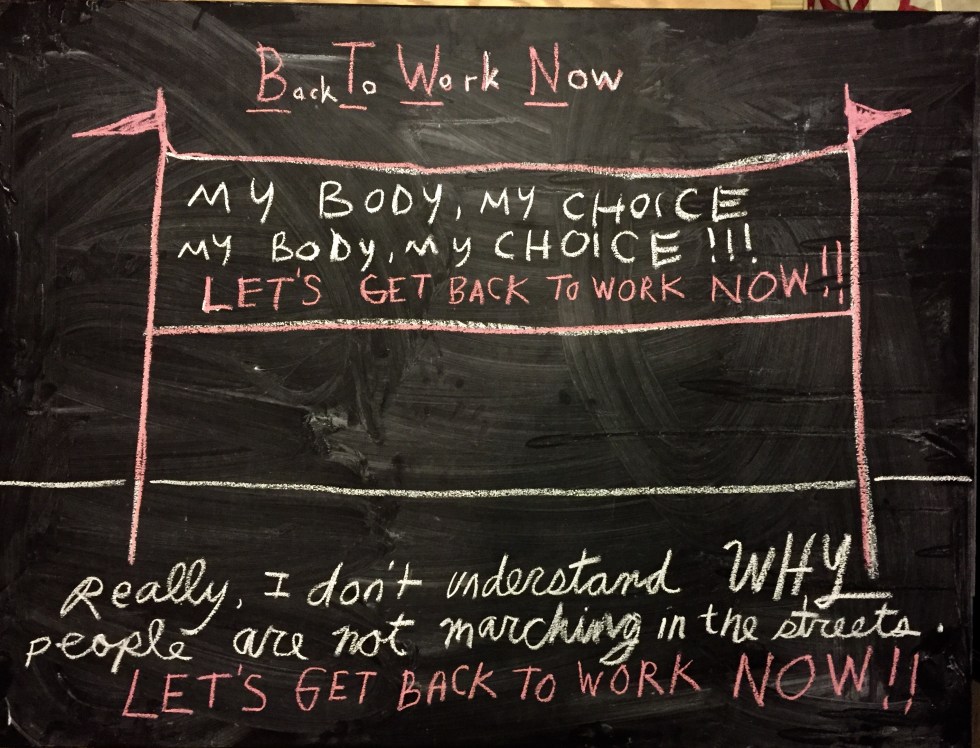 Back To Work Now
MY BODY, MY CHOICE
MY BODY, MY CHOICE!!!
LET'S GET BACK TO WORK NOW!!
Really, I don't understand WHY
people are not marching in the streets.
LET'S GET BACK TO WORK NOW!!